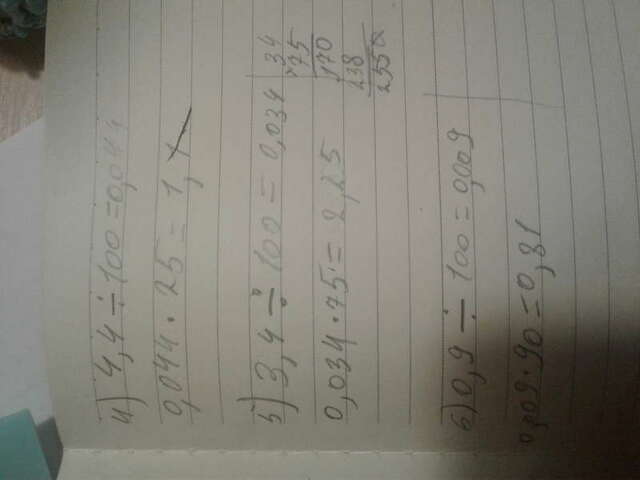 4) 4,4 ÷ 100 = 0,044
0,044 · 25 = 1,1
5) 3,4 ÷ 100 = 0,034
0,034 · 75 = 2,25
34
75
170
238
2550
6) 0,9 ÷ 100 = 0,009
0,009 · 90 = 0,81